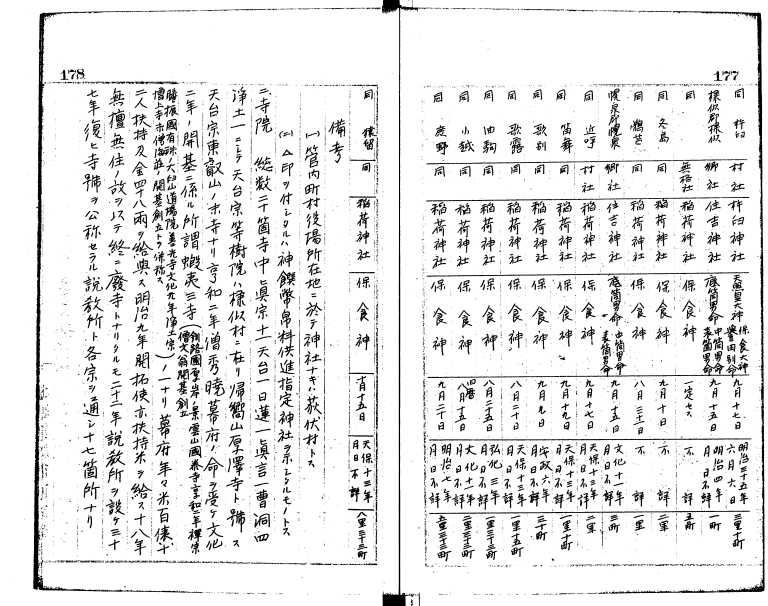 177
同 杵臼 村社 杵臼神社 天照皇大神 保食大神 譽田別命 九月十七日 明治三十五年六月六日 三里十町
様似郡様似 郷社 住吉神社 底筒男命 中筒男命 表筒男命 九月十五日 明治四年月日不詳 一町
同 無格社 稲荷神社 保食神 一定セス 不詳 五町
同 冬島 同 稲荷神社 保食神 九月十五日 不詳 二里
同 鵜苫 同 稲荷神社 保食神 八月三十日 不詳
幌泉郡幌泉 郷社 住吉神社 底筒男命 中筒男命 表筒男命 九月十五日 文化十一年月日不詳 三町
同 近呼 村社 稲荷神社 保食神 九月十七日 天保十三年月日不詳 二里
同 笛舞 同 稲荷神社 保食神 九月十九日 天保十三年月日不詳 一里十町
同 歌別 同 稲荷神社 保食神 九月九日 安政六年月日不詳 三十町
同 歌露 同 稲荷神社 保食神 八月二十日 天保十三年月日不詳 一里十五町
同 油駒 同 稲荷神社 保食神 八月二十五日 弘化三年月日不詳 二里三十三町
同 小越 同 稲荷神社 保食神 旧暦八月十五日 文化十一年月日不詳 三里三十三町
同 庶野 同 稲荷神社 保食神 九月二十日 明治七年月日不詳 五里三十三町
178
同 猿留 同 稲荷神社 保食神 十月十五日 天保十三年月日不詳 八里三十三町
備考
(一) 管内町村役場所在地ニ於テ神社ナキハ荻伏村トス
(二) △印ヲ付シタルハ神饌幣帛料供進指定神社ヲ示シタルモノトス
二、寺院 総数二十箇寺中眞宗十一天台一日蓮一眞言一曹洞四
浄土一ニシテ天台宗等樹院ハ様似村ニ在リ帰嚮山厚澤寺ト號ス
天台宗東叡山ノ末寺ナリ享和二年僧秀暁幕府ノ命ヲ受ケ文化
二年ノ開基ニ係ル所謂蝦夷三寺(釧路國厚岸ノ景雲山國泰寺享和二年禅宗僧文翁開基創立
膽振國有珠ノ大臼山道場院善光寺文化九年浄土宗僧上寺末僧海莊ノ開基創立トヲ併称ス)ノ一ナリ幕府年々米百俵十
二人扶持及金四十八兩ヲ給與ス明治九年開拓使亦扶持米ヲ給ス十八年
無檀無住ノ故ヲ以テ終ニ廢寺トナリタルモ二十二年説教所ヲ設ケ三十
七年復ヒ寺號ヲ公称セラル説教所ト各宗ヲ通シ十七箇所ナリ